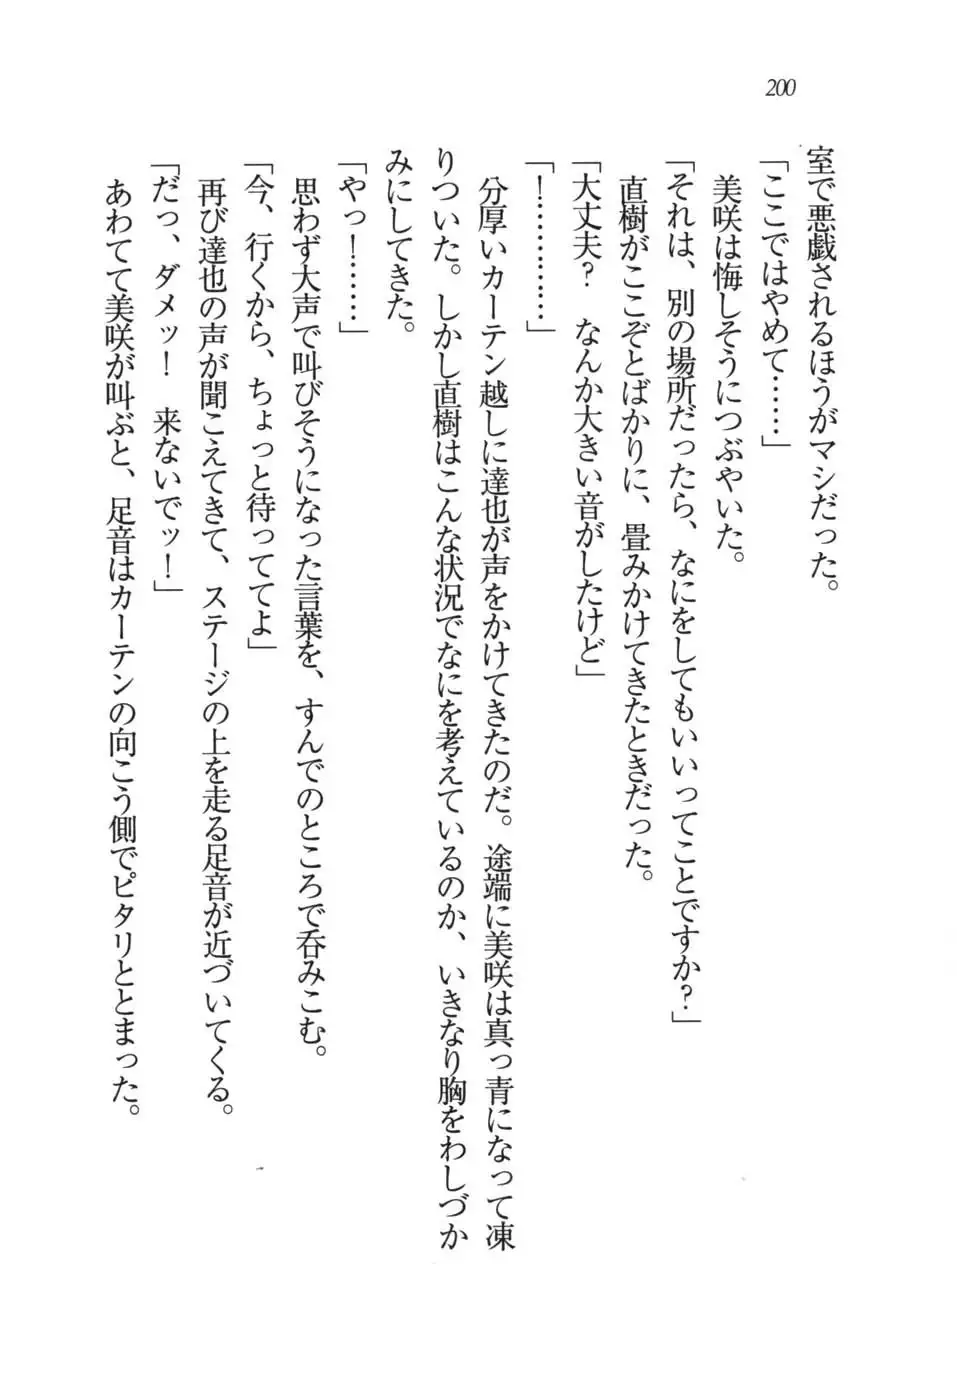 200
室で悪戯されるほうがマシだった。
「ここではやめて……」
美咲は悔しそうにつぶやいた。
「それは、別の場所だったら、なにをしてもいいってことですか？」
直樹がここぞとばかりに、畳みかけてきたときだった。
「大丈夫？　なんか大きい音がしたけど」
「！…………」
分厚いカーテン越しに達也が声をかけてきたのだ。途端に美咲は真っ青になって凍
りついた。しかし直樹はこんな状況でなにを考えているのか、いきなり胸をわしづか
みにしてきた。
「やっ！……」
思わず大声で叫びそうになった言葉を、すんでのところで呑みこむ。
「今、行くから、ちょっと待っててよ」
再び達也の声が聞こえてきて、ステージの上を走る足音が近づいてくる。
「だっ、ダメッ！　来ないでッ！」
あわてて美咲が叫ぶと、足音はカーテンの向こう側でピタリととまった。